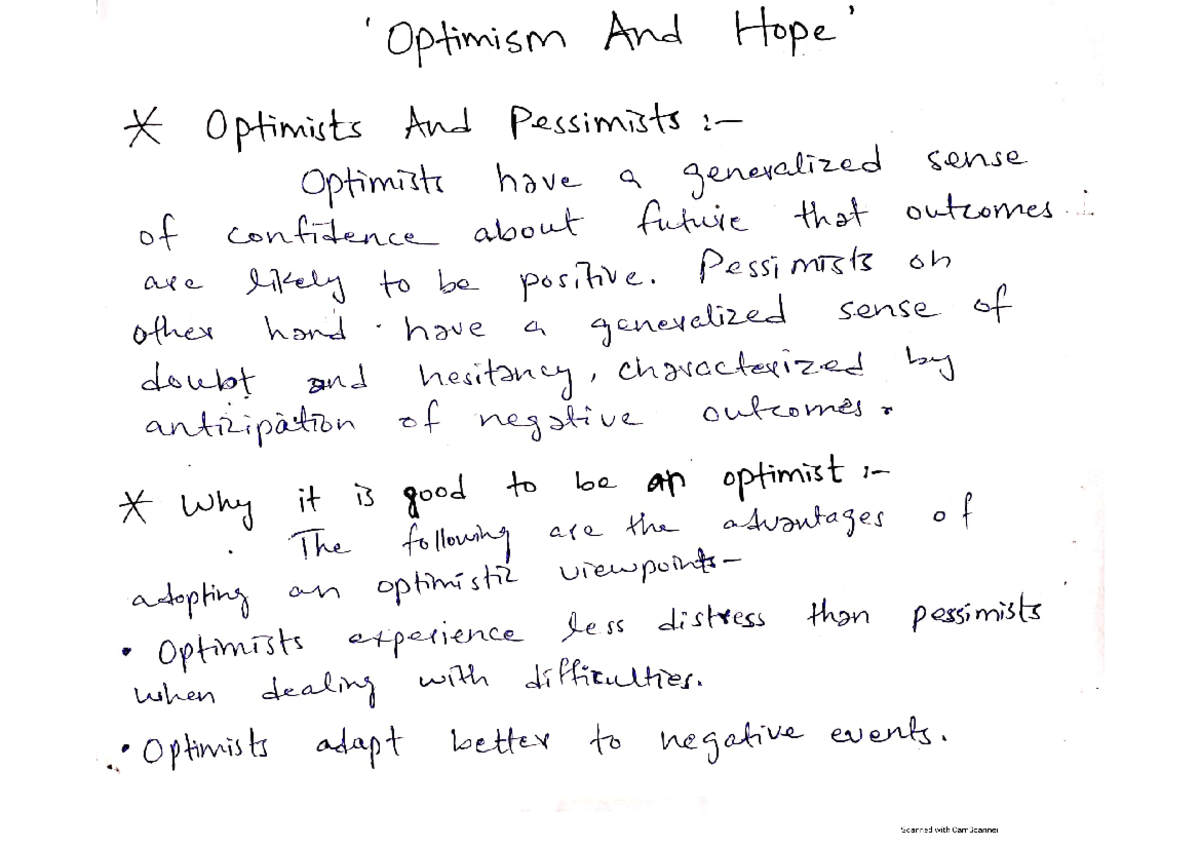 'Optimism And Hope'
* Optimists And Pessimists :-
Optimists have a generalized sense
of confidence about future that outcomes
are likely to be positive. Pessimists on
other hand have a generalized sense of
doubt and hesitancy, characterized by
anticipation of negative outcomes.
* Why it is good to be an optimist :-
The following are the advantages of
adopting an optimistic viewpoints-
• Optimists experience less distress than pessimists
when dealing with difficulties.
• Optimists adapt better to negative events.
Scanned with CamScanner